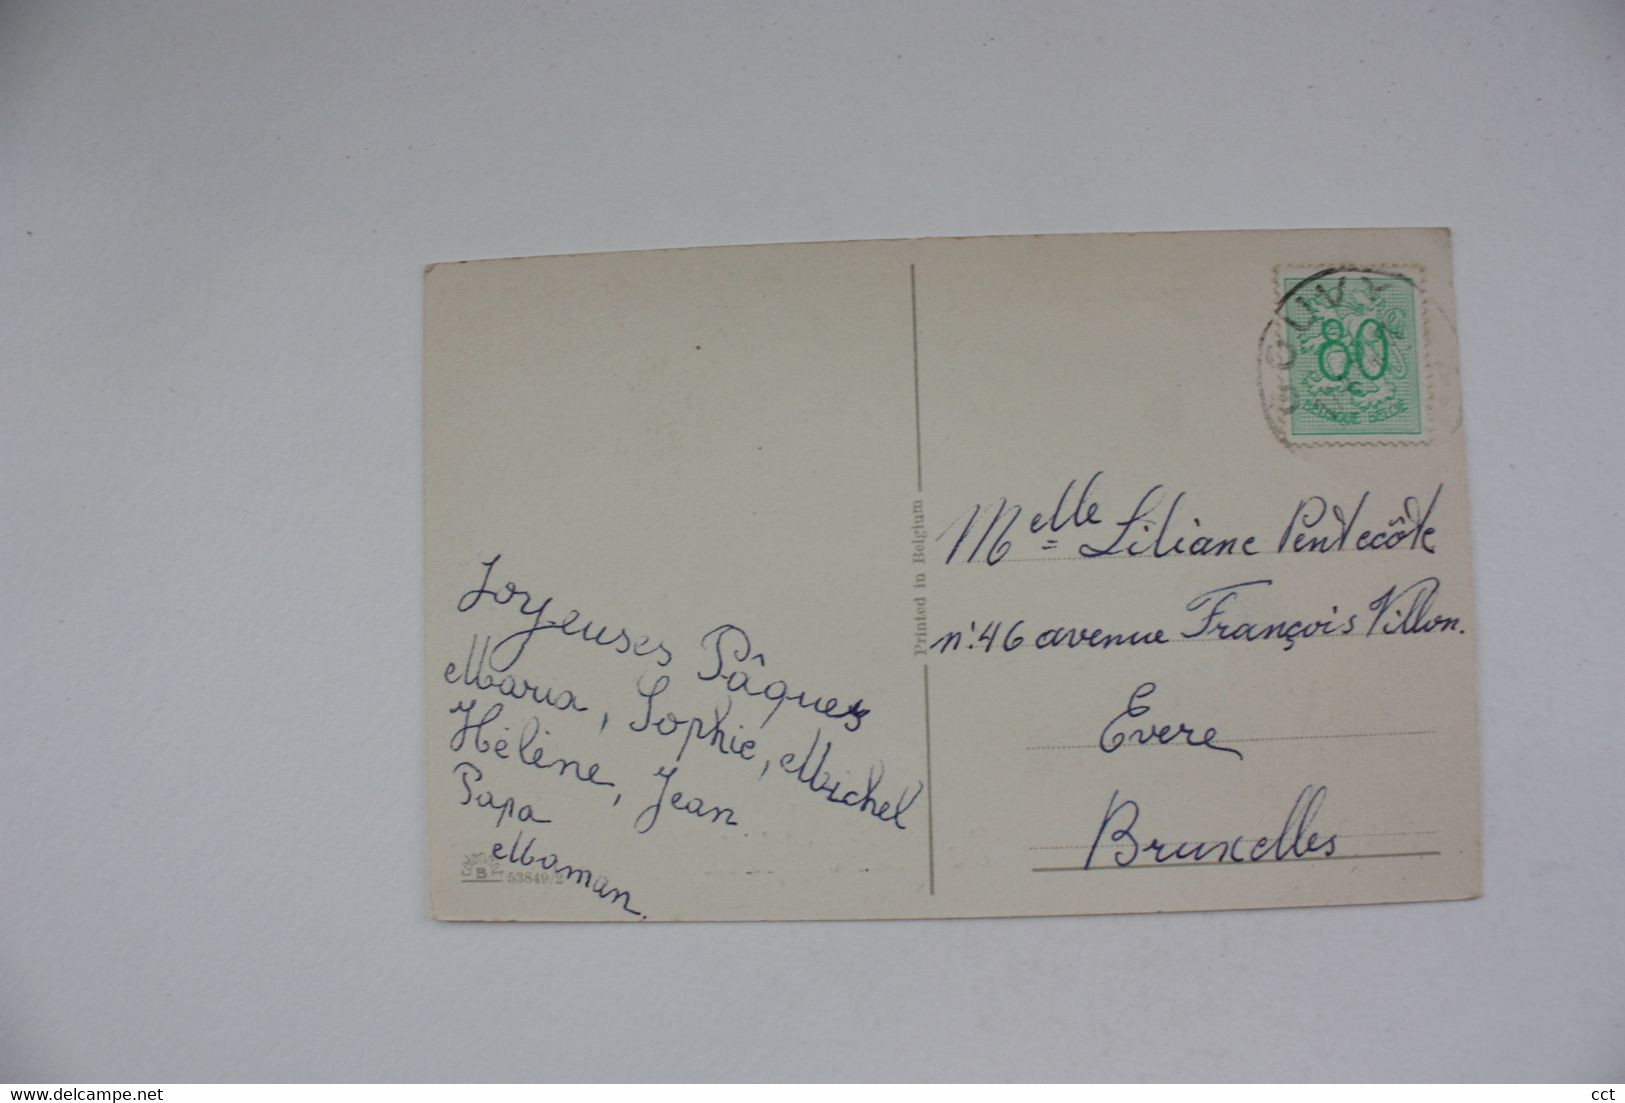 GOUVY
80
c
BELGIQUE BELGIE
Melle Liliane Pentecôte
n°. 46 avenue François Villon.
Evere
Bruxelles
Printed in Belgium
Joyeuses Pâques
Maria, Sophie, Michel
Hélène, Jean
Papa
Maman.
B 53849/2
www.delcampe.net
cct